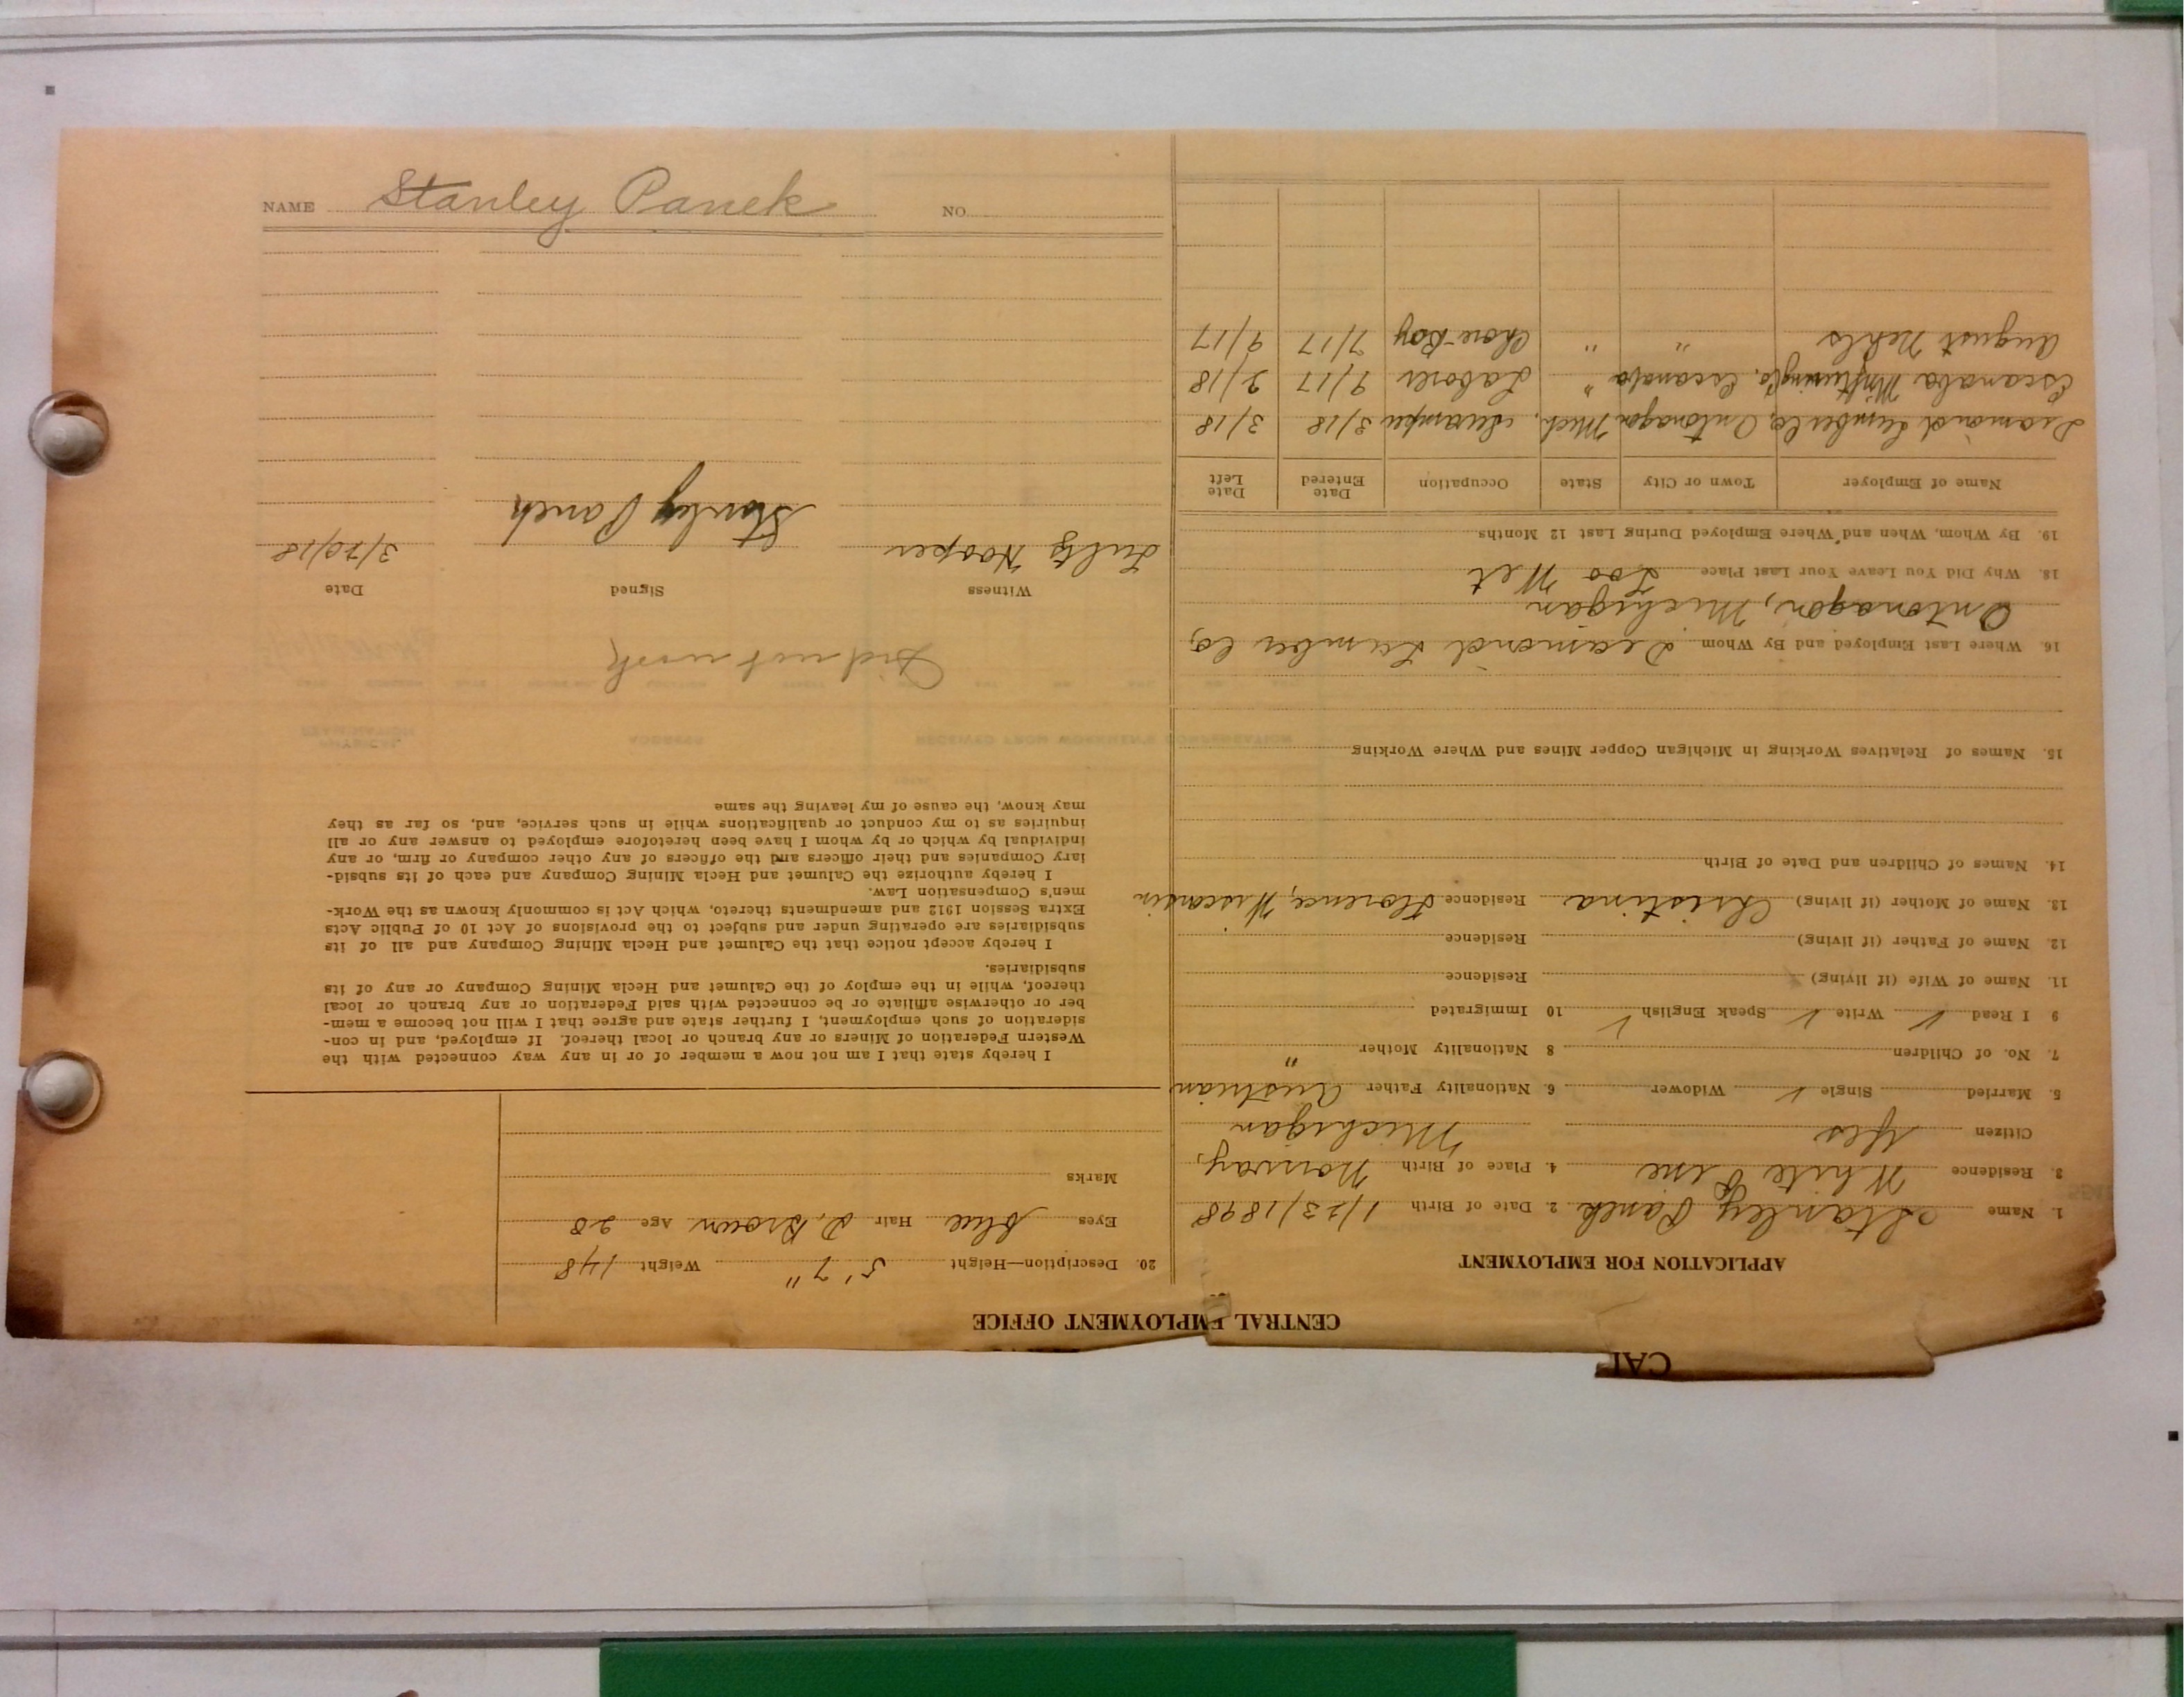 CAL
CENTRAL EMPLOYMENT OFFICE
APPLICATION FOR EMPLOYMENT
1. Name Stanley Panek 2. Date of Birth 1/23/1898
3. Residence White Pine 4. Place of Birth Norway,
Citizen Yes Michigan
5. Married Single ✓ Widower 6. Nationality Father Austrian
7. No. of Children 8 Nationality Mother "
9 I Read ✓ Write ✓ Speak English ✓ 10 Immigrated
11. Name of Wife (if living) Residence
12. Name of Father (if living) Residence
13. Name of Mother (if living) Christina Residence Florence, Wisconsin
14. Names of Children and Date of Birth
15. Names of Relatives Working in Michigan Copper Mines and Where Working
16. Where Last Employed and By Whom Diamond Lumber Co,
Ontonagon, Michigan
18. Why Did You Leave Your Last Place Too Wet
19. By Whom, When and Where Employed During Last 12 Months
Name of Employer Town or City State Occupation Date Entered Date Left
Diamond Lumber Co, Ontonagon Mich, Swamper 3/18 3/18
Escanaba Mnfturing Co, Escanaba " Laborer 9/17 2/18
August Nehls " " Chore-Boy 7/17 9/17
20. Description—Height 5' 7" Weight 148
Eyes blue Hair D. Brown Age 20
Marks
I hereby state that I am not now a member of or in any way connected with the
Western Federation of Miners or any branch or local thereof. If employed, and in con-
sideration of such employment, I further state and agree that I will not become a mem-
ber or otherwise affiliate or be connected with said Federation or any branch or local
thereof, while in the employ of the Calumet and Hecla Mining Company or any of its
subsidiaries.
I hereby accept notice that the Calumet and Hecla Mining Company and all of its
subsidiaries are operating under and subject to the provisions of Act 10 of Public Acts
Extra Session 1912 and amendments thereto, which Act is commonly known as the Work-
men's Compensation Law.
I hereby authorize the Calumet and Hecla Mining Company and each of its subsid-
iary Companies and their officers and the officers of any other company or firm, or any
individual by which or by whom I have been heretofore employed to answer any or all
inquiries as to my conduct or qualifications while in such service, and, so far as they
may know, the cause of my leaving the same
Did not work
Witness Signed Date
Hooper Stanley Panek 3/20/18
NAME Stanley Panek NO.